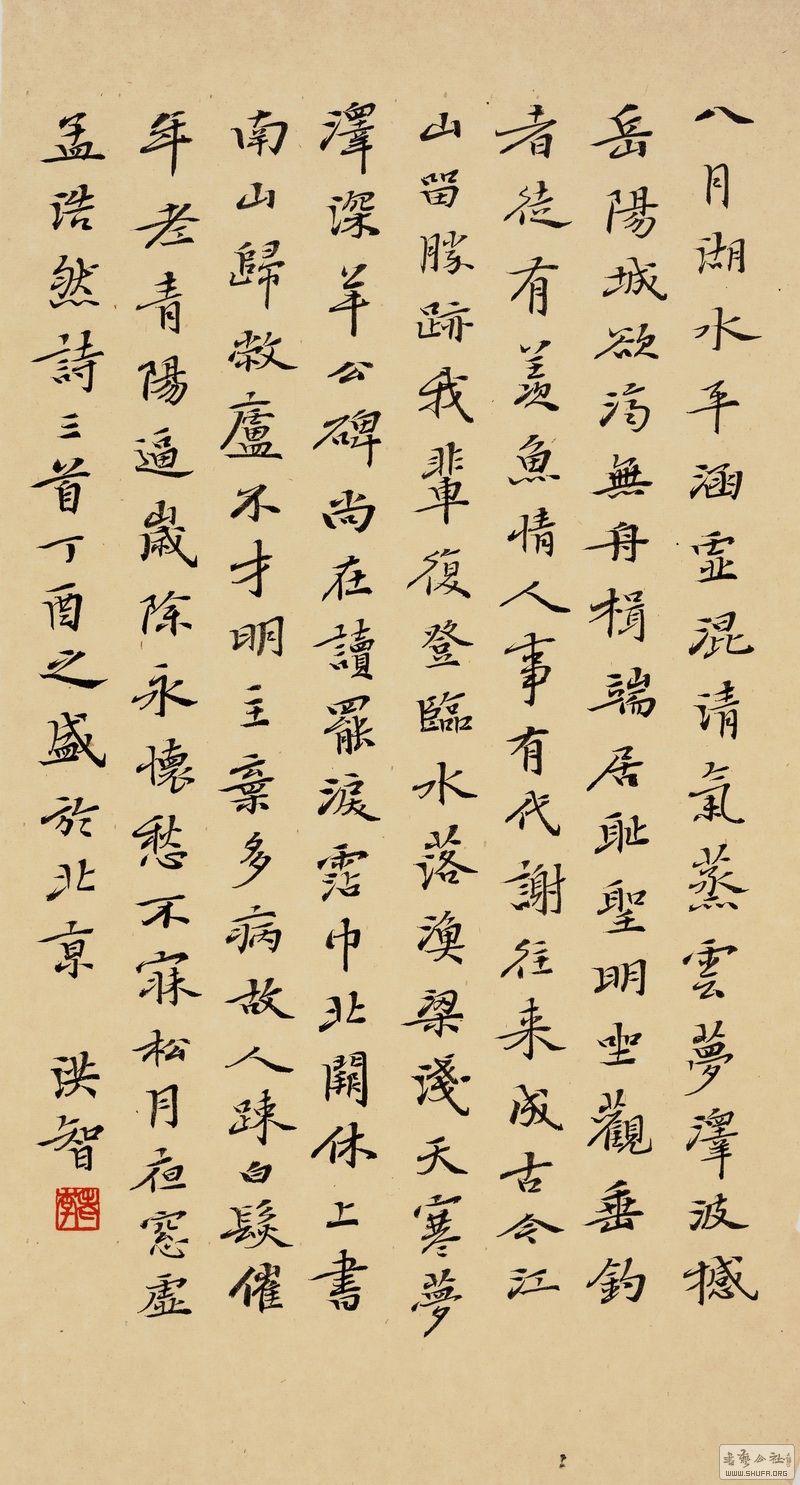 八月湖水平涵虛混清氣蒸雲夢澤波撼
岳陽城欲濟無舟楫端居恥聖明坐觀垂釣
者徒有羨魚情人事有代謝往来成古今江
山留勝跡我輩復登臨水落漁梁淺天寒夢
澤深羊公碑尚在讀罷淚霑巾北闕休上書
南山歸敝廬不才明主棄多病故人疎白髮催
年老青陽逼歲除永懷愁不寐松月夜窓虛
孟浩然詩三首丁酉之盛於北京 洪智
WWW.SHUFA.ORG